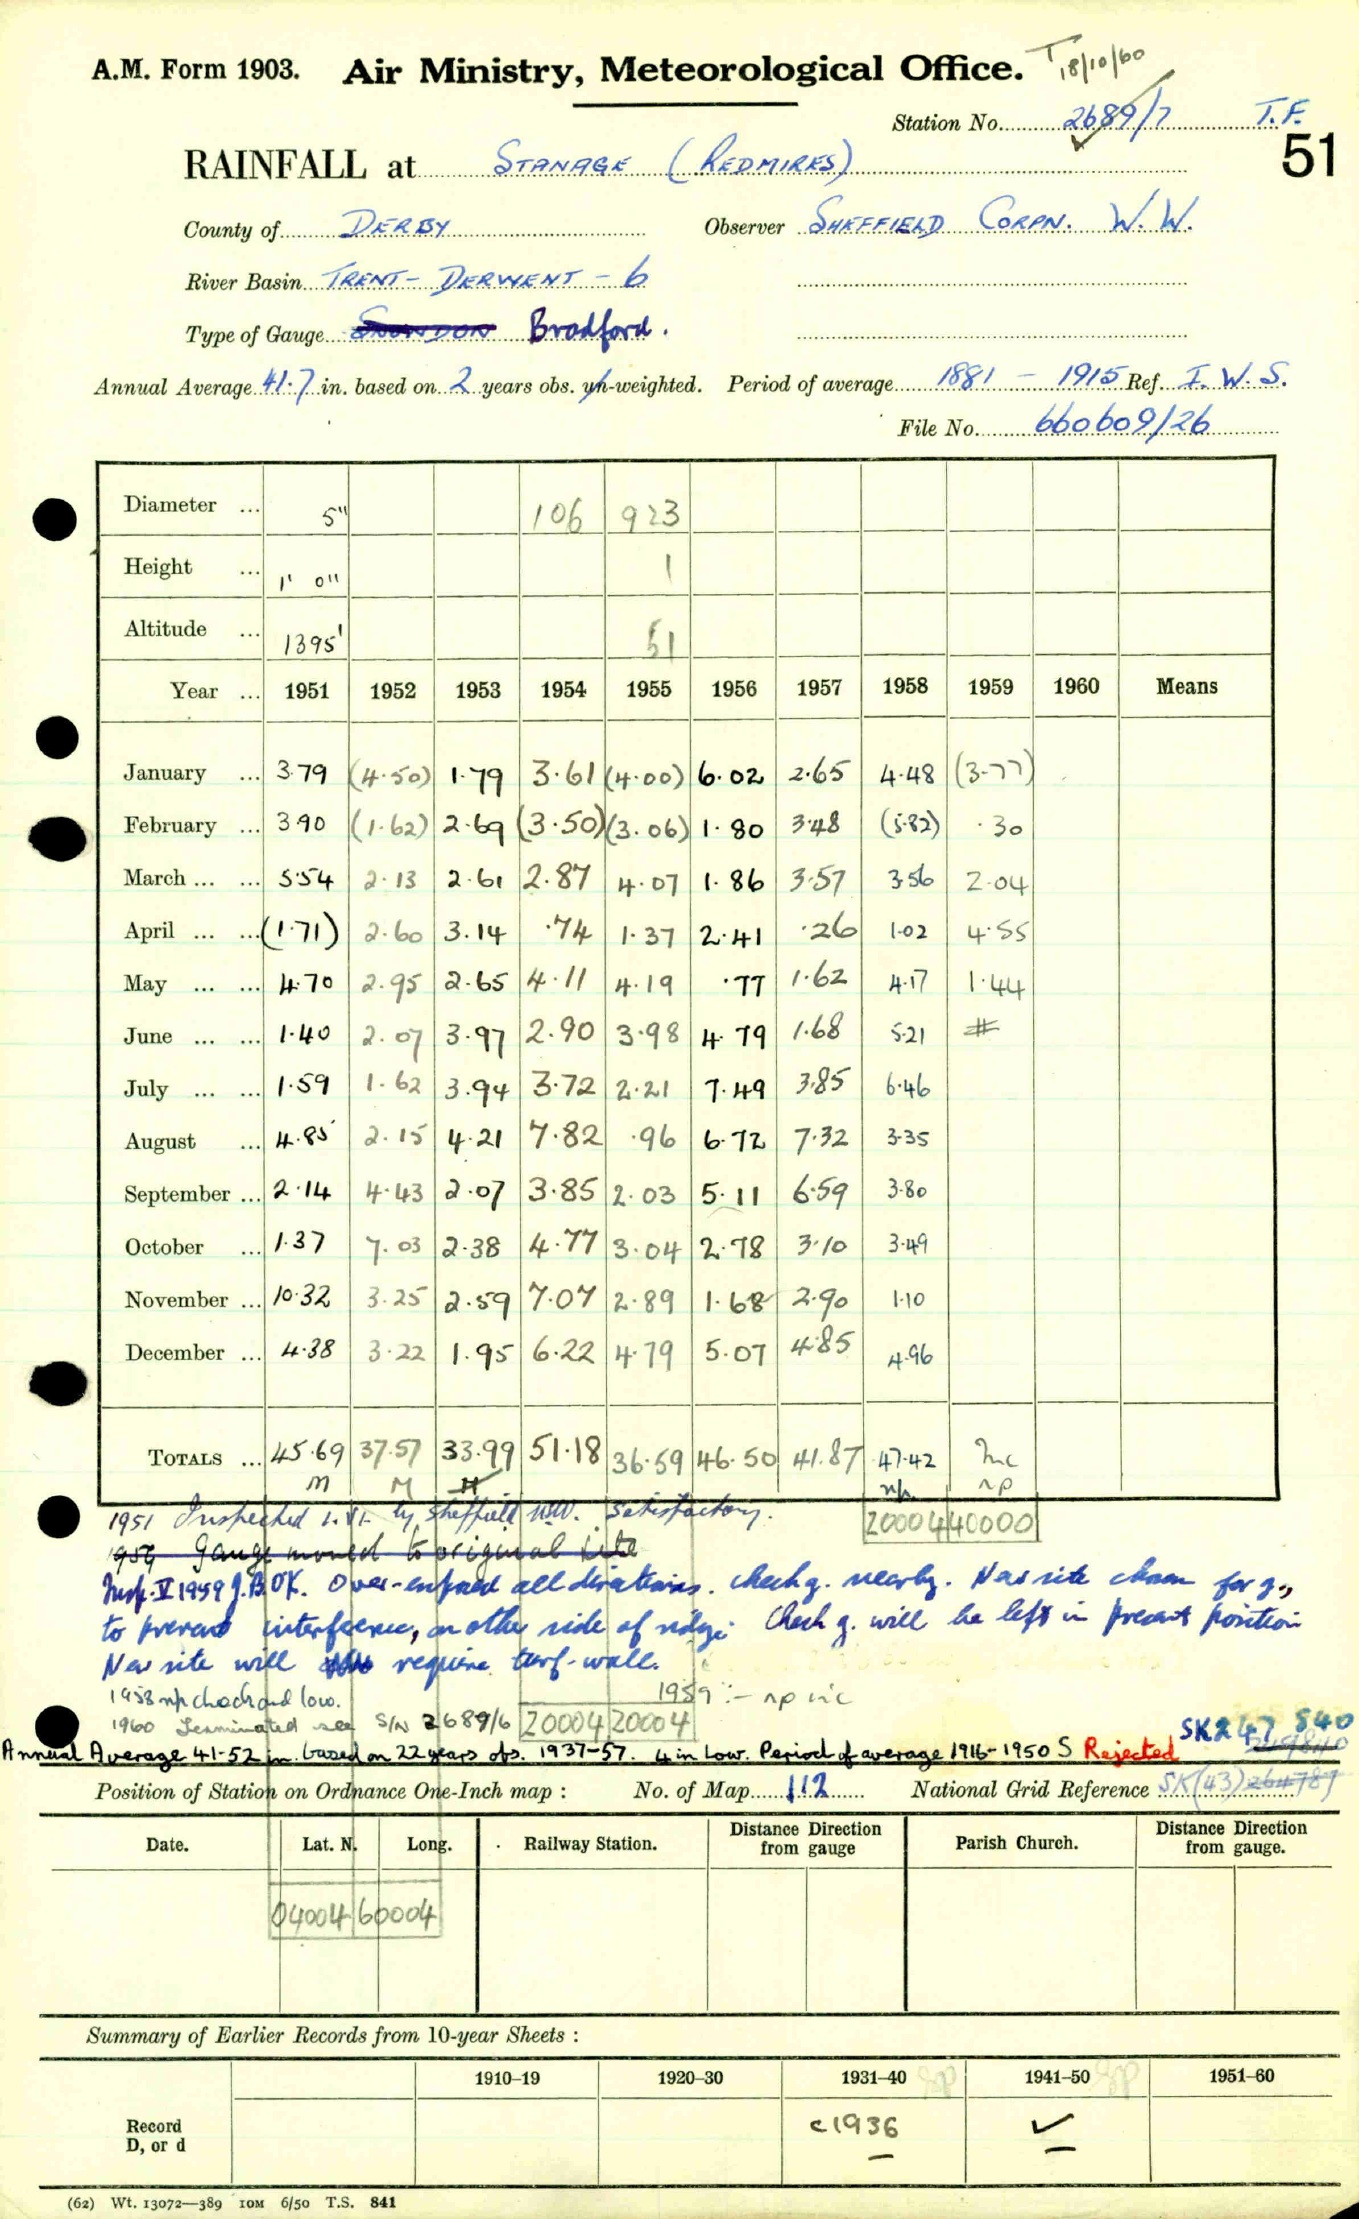 A.M. Form 1903. Air Ministry, Meteorological Office. T 18/10/60
Station No. 2689/7 T.F.
51
RAINFALL at STANAGE (REDMIRES)
County of DERBY Observer SHEFFIELD CORPN. W.W.
River Basin TRENT - DERWENT - 6
Type of Gauge SNOWDON Bradford.
Annual Average 41.7 in. based on 2 years obs. un-weighted. Period of average 1881 - 1915 Ref. I.W.S.
File No. 660609/26
Diameter ... 5" 106 923
Height ... 1' 0" 1
Altitude ... 1395' 51
Year ... 1951 1952 1953 1954 1955 1956 1957 1958 1959 1960 Means
January ... 3.79 (4.50) 1.79 3.61 (4.00) 6.02 2.65 4.48 (3.77)
February ... 3.90 (1.62) 2.69 (3.50) (3.06) 1.80 3.48 (5.82) .30
March ... ... 5.54 2.13 2.61 2.87 4.07 1.86 3.57 3.56 2.04
April ... ... (1.71) 2.60 3.14 .74 1.37 2.41 .26 1.02 4.55
May ... ... 4.70 2.95 2.65 4.11 4.19 .77 1.62 4.17 1.44
June ... ... 1.40 2.07 3.97 2.90 3.98 4.79 1.68 5.21 #
July ... ... 1.59 1.62 3.94 3.72 2.21 7.49 3.85 6.46
August ... 4.85 2.15 4.21 7.82 .96 6.72 7.32 3.35
September ... 2.14 4.43 2.07 3.85 2.03 5.11 6.59 3.80
October ... 1.37 7.03 2.38 4.77 3.04 2.78 3.10 3.49
November ... 10.32 3.25 2.59 7.07 2.89 1.68 2.90 1.10
December ... 4.38 3.22 1.95 6.22 4.79 5.07 4.85 4.96
TOTALS ... 45.69 37.57 33.99 51.18 36.59 46.50 41.87 47.42 Inc
m M np. np
1951 Inspected by Sheffield W.W. Satisfactory. 20004 40000
1959 Gauge moved to original site
Insp. V 1959 J.B. OK. Over-exposed all directions. Check g. nearby. New site chosen for g.,
to prevent interference, on other side of ridge. Check g. will be left in present position
New site will require turf-wall.
1958 np check and low. 1959 :- np inc
1960 Terminated see S/N 2689/6 20004 20004
SK 247 840
Annual Average 41-52 in. based on 22 years obs. 1937-57. 4 in Low. Period of average 1916-1950 S Rejected
Position of Station on Ordnance One-Inch map : No. of Map 112 National Grid Reference SK(43) 264787
Date. Lat. N. Long. Railway Station. Distance Direction from gauge Parish Church. Distance Direction from gauge.
04004 60004
Summary of Earlier Records from 10-year Sheets :
1910–19 1920–30 1931–40 1941–50 1951–60
Record c1936 ✓
D, or d
(62) Wt. 13072—389 10M 6/50 T.S. 841